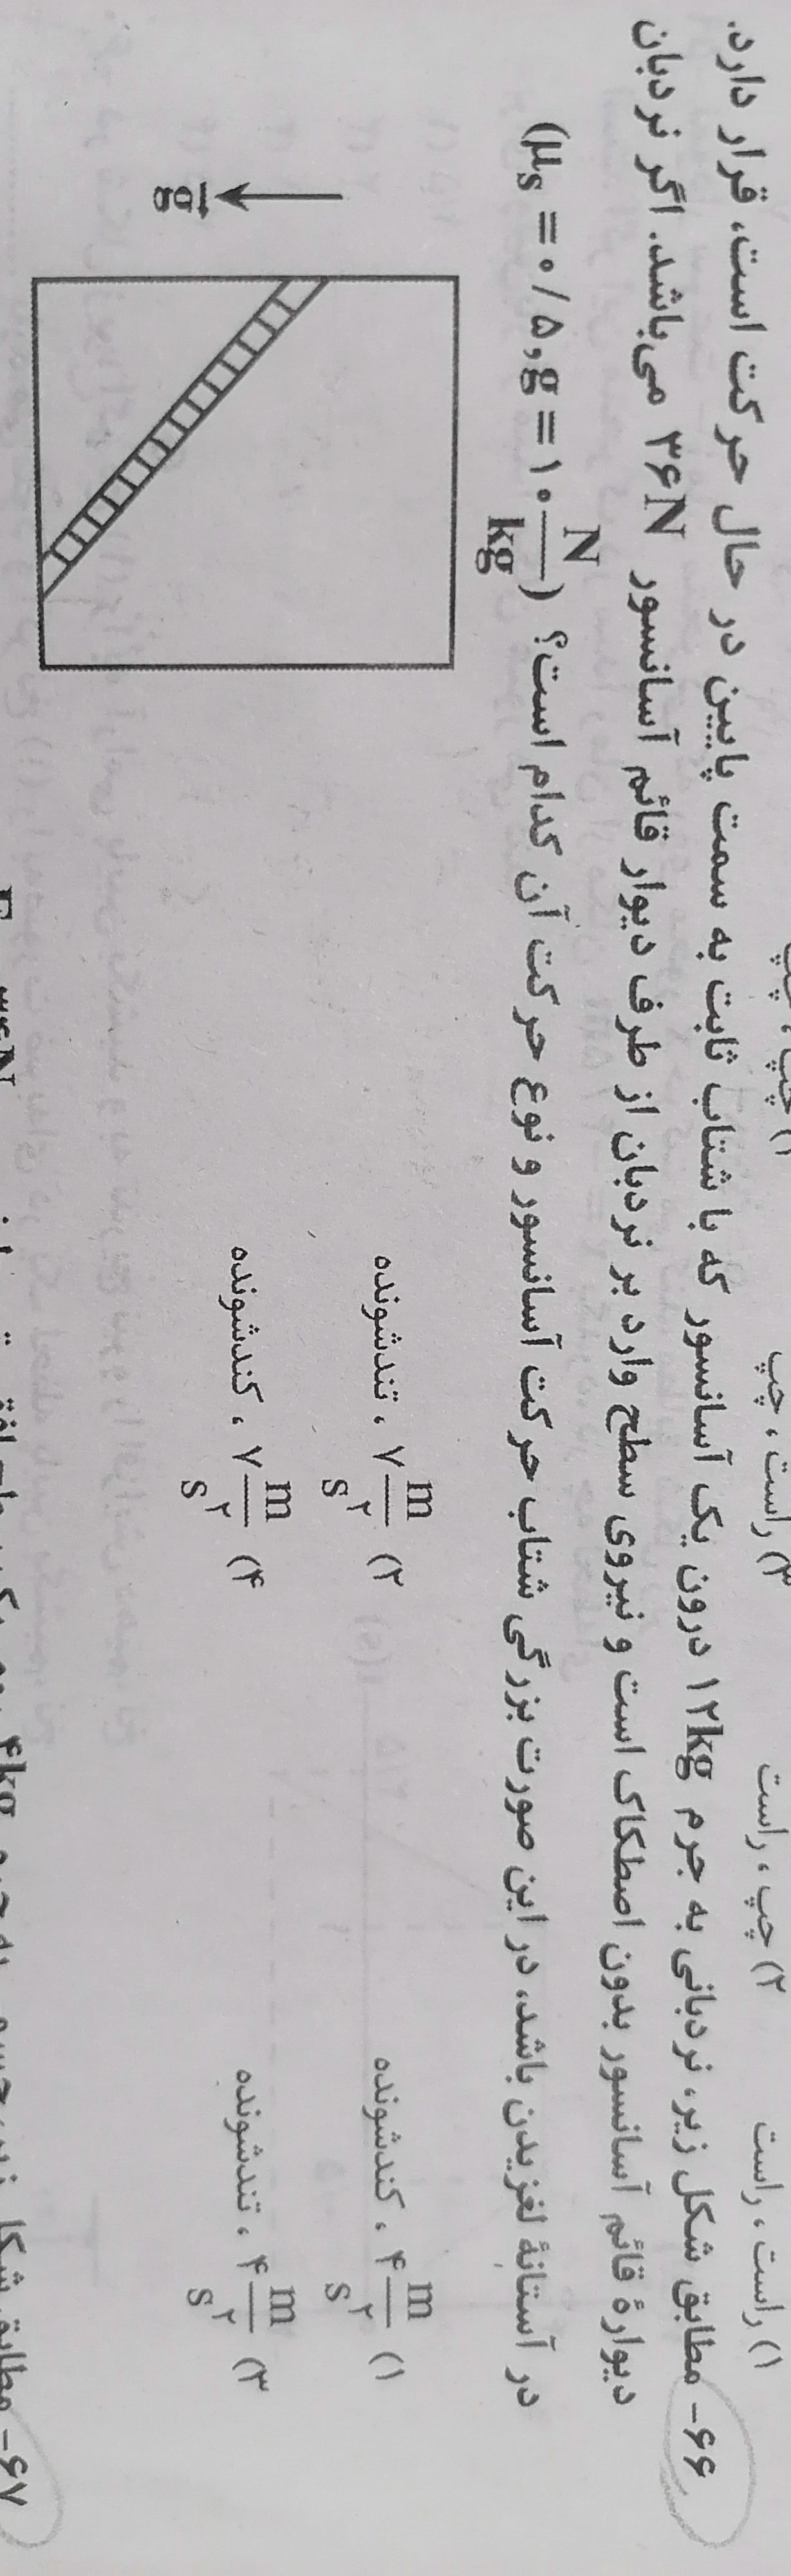 ۱) راست، راست ۲) چپ، راست ۳) راست، چپ
۶۶- مطابق شکل زیر، نردبانی به جرم ۱۲kg درون یک آسانسور که با شتاب ثابت به سمت پایین در حال حرکت است، قرار دارد.
دیوارهٔ قائم آسانسور بدون اصطکاک است و نیروی سطح وارد بر نردبان از طرف دیوار قائم آسانسور ۳۶N می‌باشد. اگر نردبان
در آستانهٔ لغزیدن باشد، در این صورت بزرگی شتاب حرکت آسانسور و نوع حرکت آن کدام است؟ (μs = ۰/۵, g = ۱۰ N/kg)
۱) ۴ m/s۲ ، کندشونده
۲) ۷ m/s۲ ، تندشونده
۳) ۴ m/s۲ ، تندشونده
۴) ۷ m/s۲ ، کندشونده
g
۶۷- مطابق شکل زیر، جسمی به جرم ۴kg